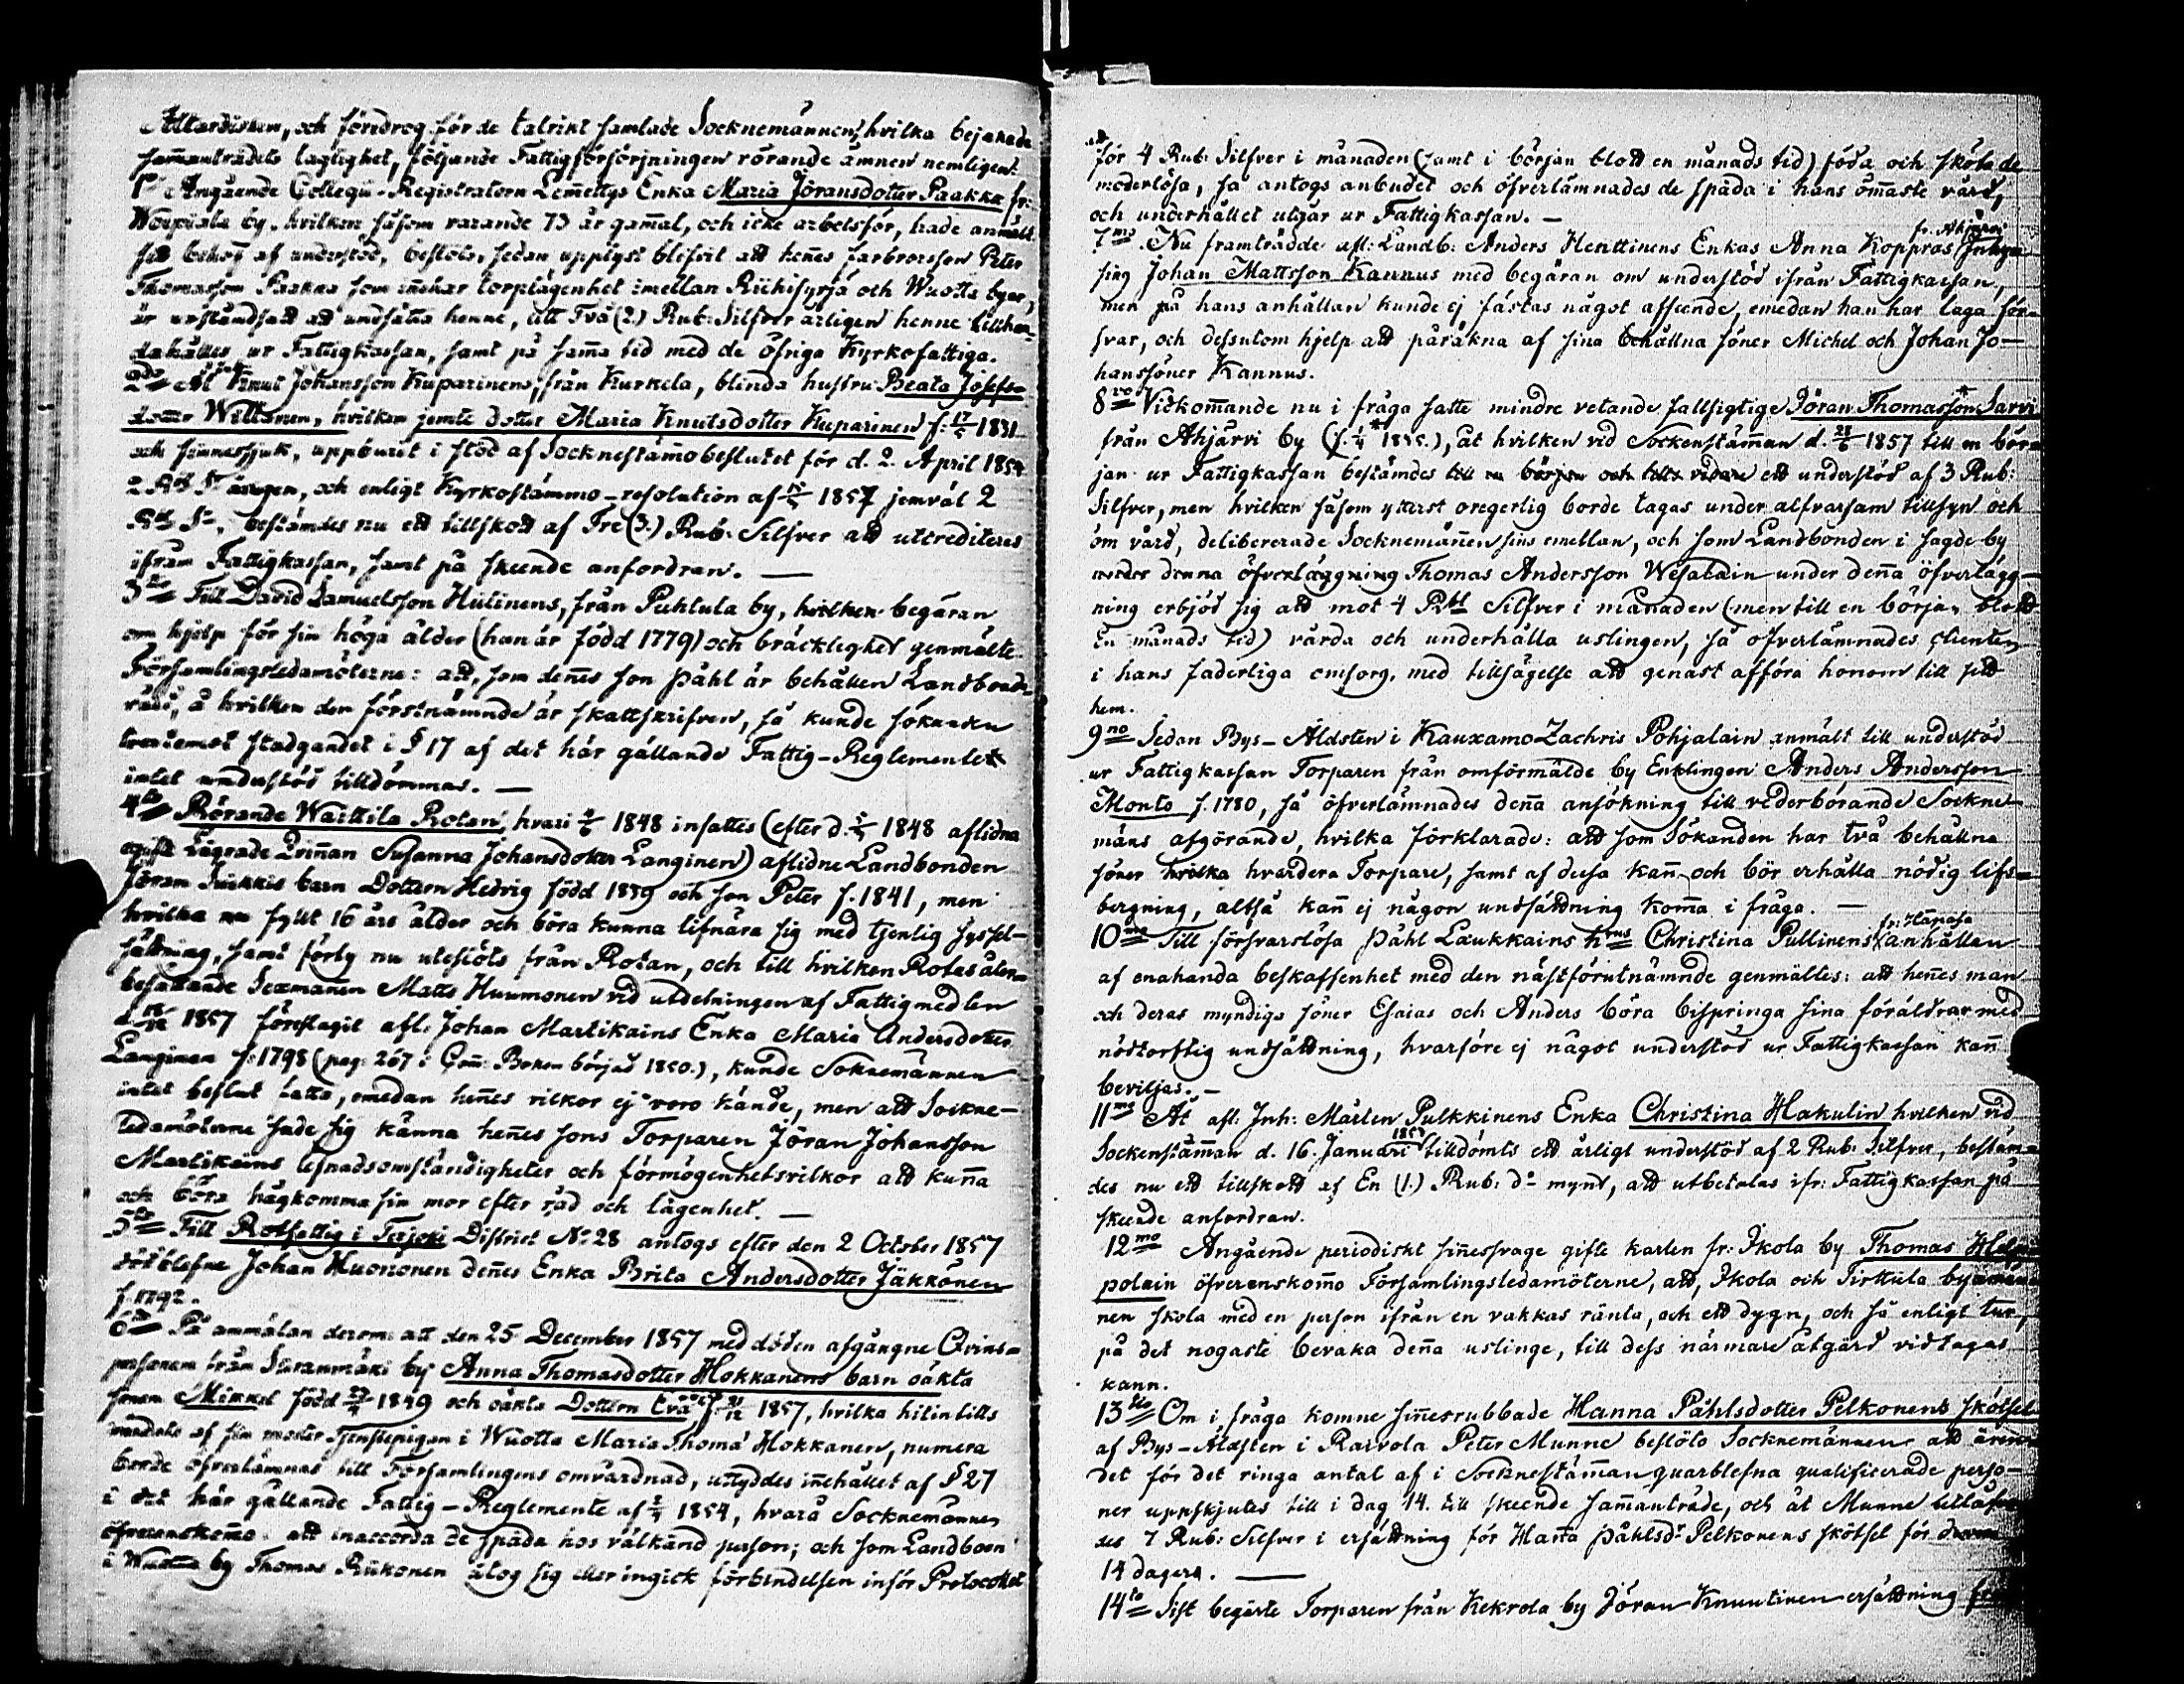 Altardisken, och föredrog för de talrikt samlade Socknemännen, hvilka bejakade
sammanträdets laglighet, följande Fattigförsörjningen rörande ämnen nemligen:
1o Angående Collegii-Registratorn Lemettys Enka Maria Jöransdotter Paakka fr:
by, hvilken såsom varande 73 år gam̄al, och icke arbetsför, hade anmält
sitt behof af understöd, beslöts, sedan upplyst blifvit att hen̄es farbrorsson Peter
Thomasson Paakka som in̄ehar torplägenhet imellan Riihisyrjä och Wuotta byar,
är urståndsatt att undsätta henne, att Två (2.) Rub: Silfver årligen henne tillhan-
dahålles ur Fattigkassan, samt på sam̄a tid med de öfriga Kyrkofattiga.
2do Åt Knut Johansson Kuparinens, från Kurkela, blinda hustru Beata Josefs-
dotter Willanen, hvilken jemte dotter Maria Knutsdotter Kuparinen f. 17/5 1831
och sinnessjuk, uppburit i stöd af Socknestämmobeslutet för d. 2. April 1854
2 Rbl Sr årligen, och enligt Kyrkostämmo-resolution af 1857 jemväl 2
Rbl Sr, bestämdes nu ett tillskott af Tre (3.) Rub: Silfver att utcrediteras
ifrån Fattigkassan, samt på skeende anfordran. —
3tio Till David Samuelsson Hülinens, från Puhtula by, hvilken begäran
om hjelp för sin höga ålder (han är född 1779) och bräcklighet genmälte
Församlingsledamöterne: att, som den̄es son Påhl är behållen Landbonde
, å hvilken den förstnämnde är skattskrifven, så kunde sökanden
tvertemot stadgandet i § 17 af det här gällande Fattig-Reglementet
intet understöd tilldömmas. —
4to Rörande Waittila Rotan, hvari 1848 insattes (efter d. 1848 aflidna
Lägrade Qvin̄an Susanna Johansdotter Langinen) aflidne Landbonden
Jöran barn Dottern Hedvig född 1839 och son Peter f. 1841, men
hvilka nu fyllt 16 års ålder och böra kunna lifnära sig med tjenlig syssel-
sättning, samt förty nu uteslöts från Rotan, och till hvilken Rotas åter-
besättande Sexmannen Matts Huumonen vid utdelningen af Fattigmedlen
d. 1857 föreslagit afl. Johan Martikains Enka Maria Andersdotter
Langinen f. 1798 (pag: 267 i Com̄: Boken börjad 1850.), kunde Soknemännen
intet beslut fatta, emedan hen̄es vilkor ej voro kände, men att Sockne-
ledamöterne sade sig känna hen̄es sons Torparen Jöran Johansson
Martikains lefnadsomständigheter och förmögenhetsvilkor att kun̄a
och böra hågkomma sin mor efter råd och lägenhet. —
5to Till Rotfattig i Terjoki District No 28 antogs efter den 2 October 1857
dödblefne Johan Huononen den̄es Enka Brita Andersdotter Jäkkönen
f. 1792.
6to På anmälan derom: att den 25 December 1857 med döden afgångne Qvins-
personen från Suranmäki by Anna Thomasdotter Hokkanens barn oäkta
sonen Mikkel född 1849 och oäkta Dottern Eva 1857, hvilka hitintills
vårdats af sin moster Tjenstepigan i Wuotta Maria Thoma Hokkanen, numera
borde öfverlämnas till Församlingens omvårdnad, uttyddes in̄ehållet af § 27
i det här gällande Fattig-Reglemente af 1854, hvarå Socknemännen
öfverenskom̄o: att inaccorda de späda hos välkänd person; och som Landboen
i by Thomas Riikonen åtog sig eller ingick förbindelsen inför Protocollet
för 4 Rub: Silfver i månaden (samt i början blott en månads tid) föda och sköta de
moderlösa, så antogs anbudet och öfverlämnades de späda i hans öm̄aste vård,
och underhållet utgår ur Fattigkassan. —
fr. Ahjärvi
7mo. Nu framträdde afl: Landb: Anders Henttinens Enkas Anna Koppras Inhy-
sing Johan Mattsson Kannus med begäran om understöd ifrån Fattigkassan,
men på hans anhållan kunde ej fästas något afseende, emedan han har laga för-
svar, och dessutom hjelp att påräkna af sina behållna söner Michel och Johan Jo-
hanssöner Kannus.
8vo Vidkom̄ande nu i fråga satte mindre vetande fallsigtige Jöran Thomasson Sarvi
från Ahjärvi by (f. 1/4 1835.), åt hvilken vid Sockenstäm̄an d. 28/6 1857 till en bör-
jan ur Fattigkassan bestämdes till en början och tills vidare ett understöd af 3 Rub:
Silfver, men hvilken såsom ytterst oregerlig borde tagas under alfvarsam tillsyn och
öm vård, delibererade Socknemännen sins emellan, och som Landbonden i sagde by
under denna öfverläggning Thomas Andersson Wesalain under den̄a öfverlägg-
ning erbjöd sig att mot 4 Rbl Silfver i månaden (men till en början blott
En månads tid) vårda och underhålla uslingen, så öfverlämnades clienten
i hans faderliga omsorg, med tillsägelse att genast afföra honom till sitt
hem.
9no Sedan Bys-Äldsten i Kauxamo Zachris Pohjalain anmält till understöd
ur Fattigkassan Torparen från omförmälde by Enklingen Anders Andersson
Monto f. 1780, så öfverlämnades den̄a ansökning till vederbörande Sockne-
mäns afgörande, hvilka förklarade: att som Sökanden har två behållna
söner hvilka hvardera Torpare, samt af dessa kan̄ och bör erhålla nödig lifs-
bergning, altså kan̄ ej någon undsättning kom̄a i fråga. —
fr. Hanafa
10mo Till försvarslösa Påhl Laukkains hrus Christina Pullinens anhållan
af enahanda beskaffenhet med den nästförutnämnde genmältes: att hen̄es man
och deras myndiga söner Esaias och Anders böra bispringa sina föräldrar med
nödtorftig undsättning, hvarföre ej något understöd ur Fattigkassan kan̄
beviljas. —
11mo Åt afl. Inh: Mårten Pulkkinens Enka Christina Hakulin hvilken vid
Sockenstäm̄an d. 16. Januari tilldömts ett årligt understöd af 2 Rub: Silfver, bestäm-
des nu ett tillskott af En (1.) Rub: do mynt, att utbetalas ifr: Fattigkassan på
skeende anfordran.
12mo Angående periodiskt sin̄essvage gifte karlen fr: Ikola by Thomas
polain öfverenskom̄o Församlingsledamöterne, att, Ikola och Tirttula
nen skola med en person ifrån en vakkas ränta, och ett dygn, och så enligt tur
på det nogaste bevaka den̄a uslinge, till dess närmare åtgärd vidtagas
kann.
13tio Om i fråga komne sin̄esrubbade Hanna Påhlsdotter Pelkonens skötsel
af Bys-Äldsten i Raivola Peter Munne beslöto Socknemännen att ären-
det för det ringa antal af i Socknestäm̄an quarblefna qualificerade perso-
ner uppskjutes till i dag 14. till skeende sam̄anträde, och åt Munne
des 7 Rub: Silfver i ersättning för Han̄a Påhlsdr Pelkonens skötsel för
14 dagars. —
14to Sist begärte Torparen från Kekrola by Jöran Knuutinen ersättning